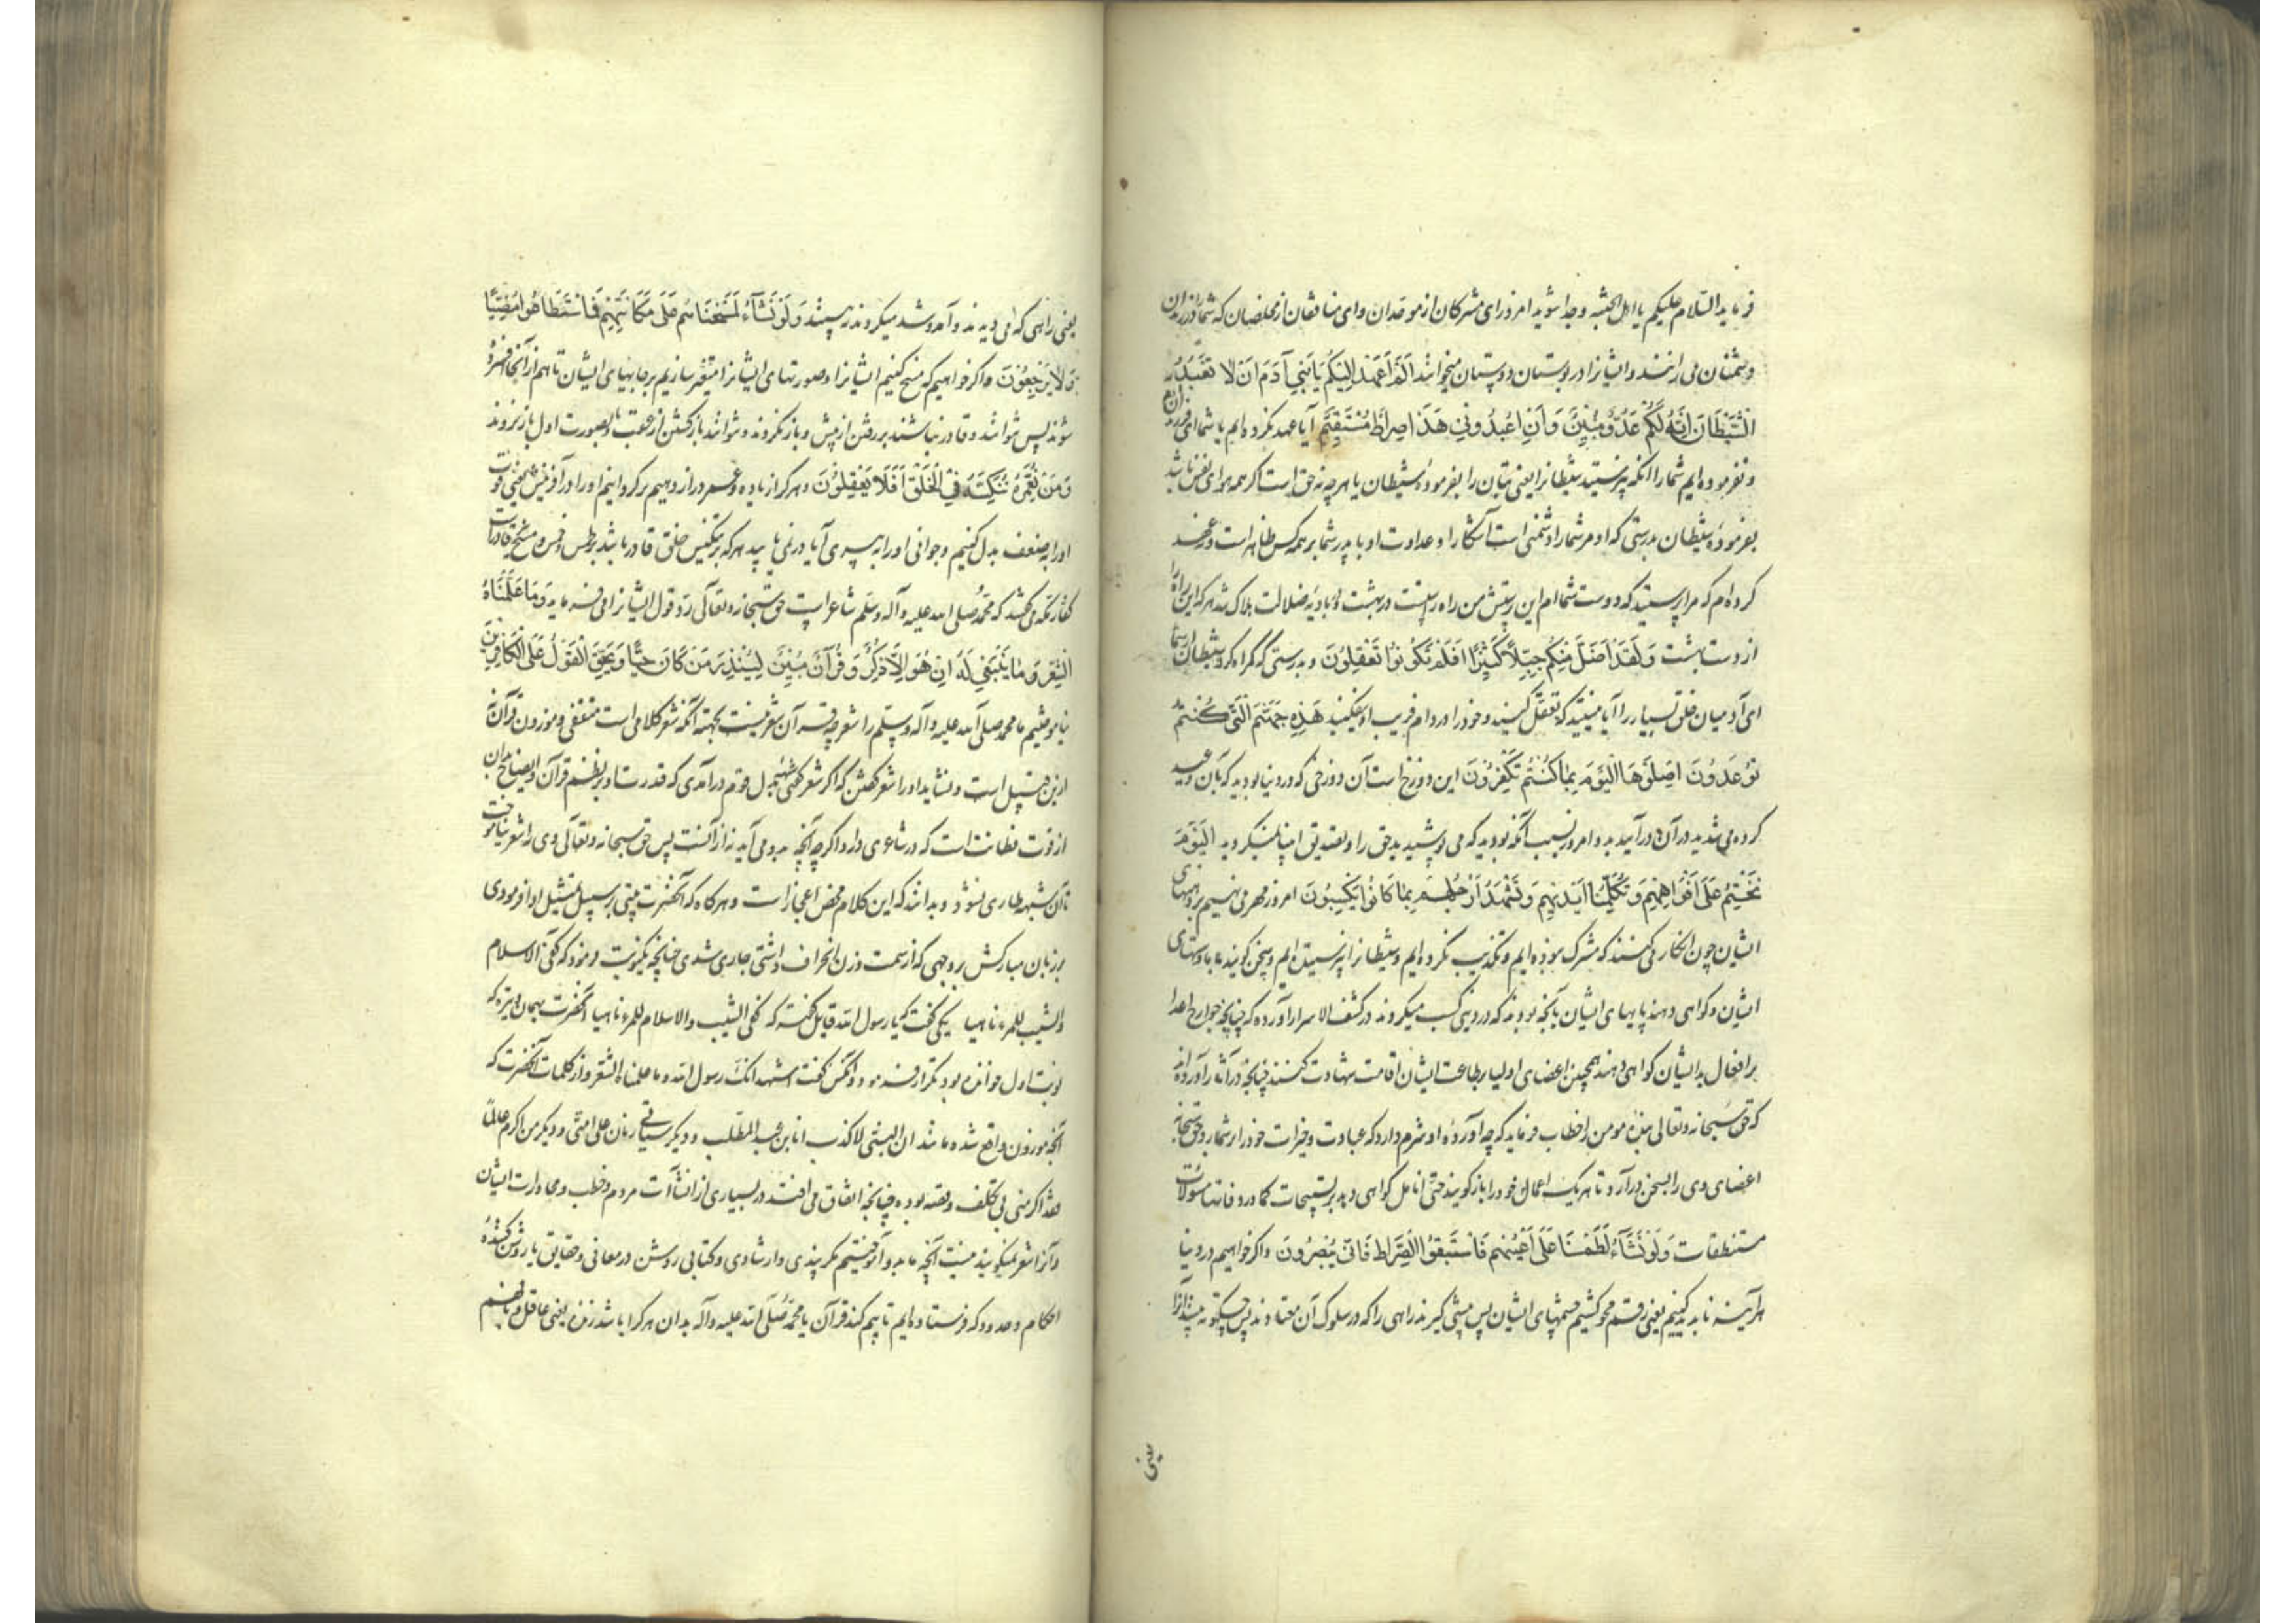 فرماید السّلام علیکم یا اهل الجنّه وجدا شوید امروز ای مشرکان از موحّدان وای منافقان از مخلصان که شما را در زندان
دشمنان می رانند و ایشانرا در بوستان دوستان میخوانند اَلَمْ اَعْهَدْ اِلَیْکُمْ یَا بَنِی آدَمَ اَنْ لَا تَعْبُدُوا
الشَّیْطَانَ اِنَّهُ لَکُمْ عَدُوٌّ مُبِینٌ وَاَنِ اعْبُدُونِی هَذَا صِرَاطٌ مُسْتَقِیمٌ آیا عهد نکرده ایم با شما ای فرزندان آدم
و نفرموده ایم شما را آنکه نپرستید شیطانرا یعنی بتان را بفرموده شیطان یا هر چه نه حق است اگر همه هوای نفس باشد
بفرموده شیطان بدرستی که او مر شما را دشمنی است آشکارا و عداوت او با پدر شما بر همه کس ظاهر است و عهد
کرده ام که مرا پرستید که دوست شما ام این پرستش من راه راست است در بهشت بادیه ضلالت هلاک شد هر که این راه را
از دست بهشت وَلَقَدْ اَضَلَّ مِنْکُمْ جِبِلًّا کَثِیرًا اَفَلَمْ تَکُونُوا تَعْقِلُونَ و بدرستی که گمراه کرد شیطان از شما
ای آدمیان خلق بسیار را آیا نیستید که تعقّل کنید و خود را در دام فریب او نیفکنید هَذِهِ جَهَنَّمُ الَّتِی کُنْتُمْ
تُوعَدُونَ اِصْلَوْهَا الْیَوْمَ بِمَا کُنْتُمْ تَکْفُرُونَ این دوزخ است آن دوزخی که در دنیا بودید که بآن وعید
کرده می شدید در آن در آیید بدو امروز بسبب آنکه بودید که می پوشیدید حق را و تصدیق انبیا نمیکردید اَلْیَوْمَ
نَخْتِمُ عَلَی اَفْوَاهِهِمْ وَتُکَلِّمُنَا اَیْدِیهِمْ وَتَشْهَدُ اَرْجُلُهُمْ بِمَا کَانُوا یَکْسِبُونَ امروز مهر می نهیم بر دهنهای
ایشان چون انکار می کنند که مشرک نبوده ایم و تکذیب نکرده ایم و شیطانرا نپرستیده ایم و سخن گویند با ما دستهای
ایشان و گواهی دهند پایهای ایشان بآنچه بودند که در دنیا کسب میکردند در کشف الاسرار آورده که چنانچه جوارح اعدا
بر افعال بد ایشان گواهی دهند همچنین اعضای اولیا بر طاعت ایشان اقامت شهادت کنند چنانچه در آثار آورده اند
که حق سبحانه وتعالی بنده مومن را خطاب فرماید که چه آورده او شرم دارد که عبادت وخیرات خود را بر شمارد حق سبحانه
اعضای وی را بسخن درآرد تا هر یک اعمال خود را باز گویند حتی انامل گواهی دهد بر تسبیحات کما ورد فانها مسئولات
مستنطقات وَلَوْ نَشَآءُ لَطَمَسْنَا عَلَی اَعْیُنِهِمْ فَاسْتَبَقُوا الصِّرَاطَ فَاَنَّی یُبْصِرُونَ واگر خواهیم در دنیا
هر آینه ناپدید کنیم یعنی رقم محو کشیم چشمهای ایشان پس پیشی گیرند راهی را که در سلوک آن معتادند پس چگونه بینند آنرا
یعنی
یعنی راهی که می دیدند و آمد وشد میکردند نه بینند وَلَوْ نَشَآءُ لَمَسَخْنَاهُمْ عَلَی مَکَانَتِهِمْ فَمَا اسْتَطَاعُوا مُضِیًّا
وَلَا یَرْجِعُونَ واگر خواهیم که مسخ کنیم ایشانرا وصورتهای ایشانرا متغیّر سازیم بر جایهای ایشان تا هم از آنجا افسرده
شوند پس نتوانند وقادر نباشند بر رفتن از پیش و باز نگردند ونتوانند بازگشتن از عقب تا بصورت اول باز نروند
وَمَنْ نُعَمِّرْهُ نُنَکِّسْهُ فِی الْخَلْقِ اَفَلَا یَعْقِلُونَ وهر کرا زیاده عمر دراز دهیم برگردانیم او را در آفرینش یعنی قوت
او را بضعف بدل کنیم و جوانی او را به پیری آیا در نمی یابید هر که بر تنکیس خلق قادر باشد بر طمس و مسخ قادر است
کفار مکه می گفتند که محمّد صلی الله علیه وآله وسلم شاعر است حق سبحانه وتعالی ردّ قول ایشانرا می فرماید وَمَا عَلَّمْنَاهُ
الشِّعْرَ وَمَا یَنْبَغِی لَهُ اِنْ هُوَ اِلَّا ذِکْرٌ وَقُرْآنٌ مُبِینٌ لِیُنْذِرَ مَنْ کَانَ حَیًّا وَیَحِقَّ الْقَوْلُ عَلَی الْکَافِرِینَ
نیاموختیم ما محمد صلی الله علیه وآله وسلم را شعر چه قرآن شعر نیست بجهته آنکه شعر کلامی است مقفّی وموزون و قرآن نه
ازین قبیل است ونشاید او را شعر گفتن که اگر شعر گفتی شبهه بدل قوم درآمدی که قدرت او بر نظم قرآن
از قوت فطانت است که در شاعری دارد اگر چه آنچه بدو می آید نه از آنست پس حق سبحانه وتعالی وی را شعر نیاموخت
تا آن شبهه طاری نشود و بدانند که این کلام محض اعجاز است وهر گاه که آنحضرت بیتی بر سبیل تمثیل ادا فرمودی
بر زبان مبارکش بر وجهی که از سمت وزن انحراف داشتی جاری شدی چنانچه یک نوبت فرمود که کفی الاسلام
والشیب للمرء ناهیا یکی گفت که یا رسول الله قائل گفته که کفی الشیب والاسلام للمرء ناهیا آنحضرت بهمان وتیره که
نوبت اول خوانده بود تکرار فرمود و آنکس گفت اشهد انک رسول الله وما علمناه الشعر واز کلمات آنحضرت که
آنچه موزون واقع شده مانند انا النبی لا کذب انا ابن عبد المطلب و دیگر سیاتی زمان علی امتی و دیگر من اکرم عالما
فقد اکرمنی بی تکلف وقصد بوده چنانچه اتفاق می افتد در بسیاری از انشاآت مردم وخطب ومحاورات ایشان
و آنرا شعر نمیگویند نیست آنچه ما بدو آموختیم مگر پندی وارشادی وکتابی روشن در معانی وحقایق یا روشن کننده
احکام وحدود که فرستاده ایم تا بیم کند قرآن یا محمّد صلی الله علیه وآله بدان هر کرا باشد زنده یعنی عاقل